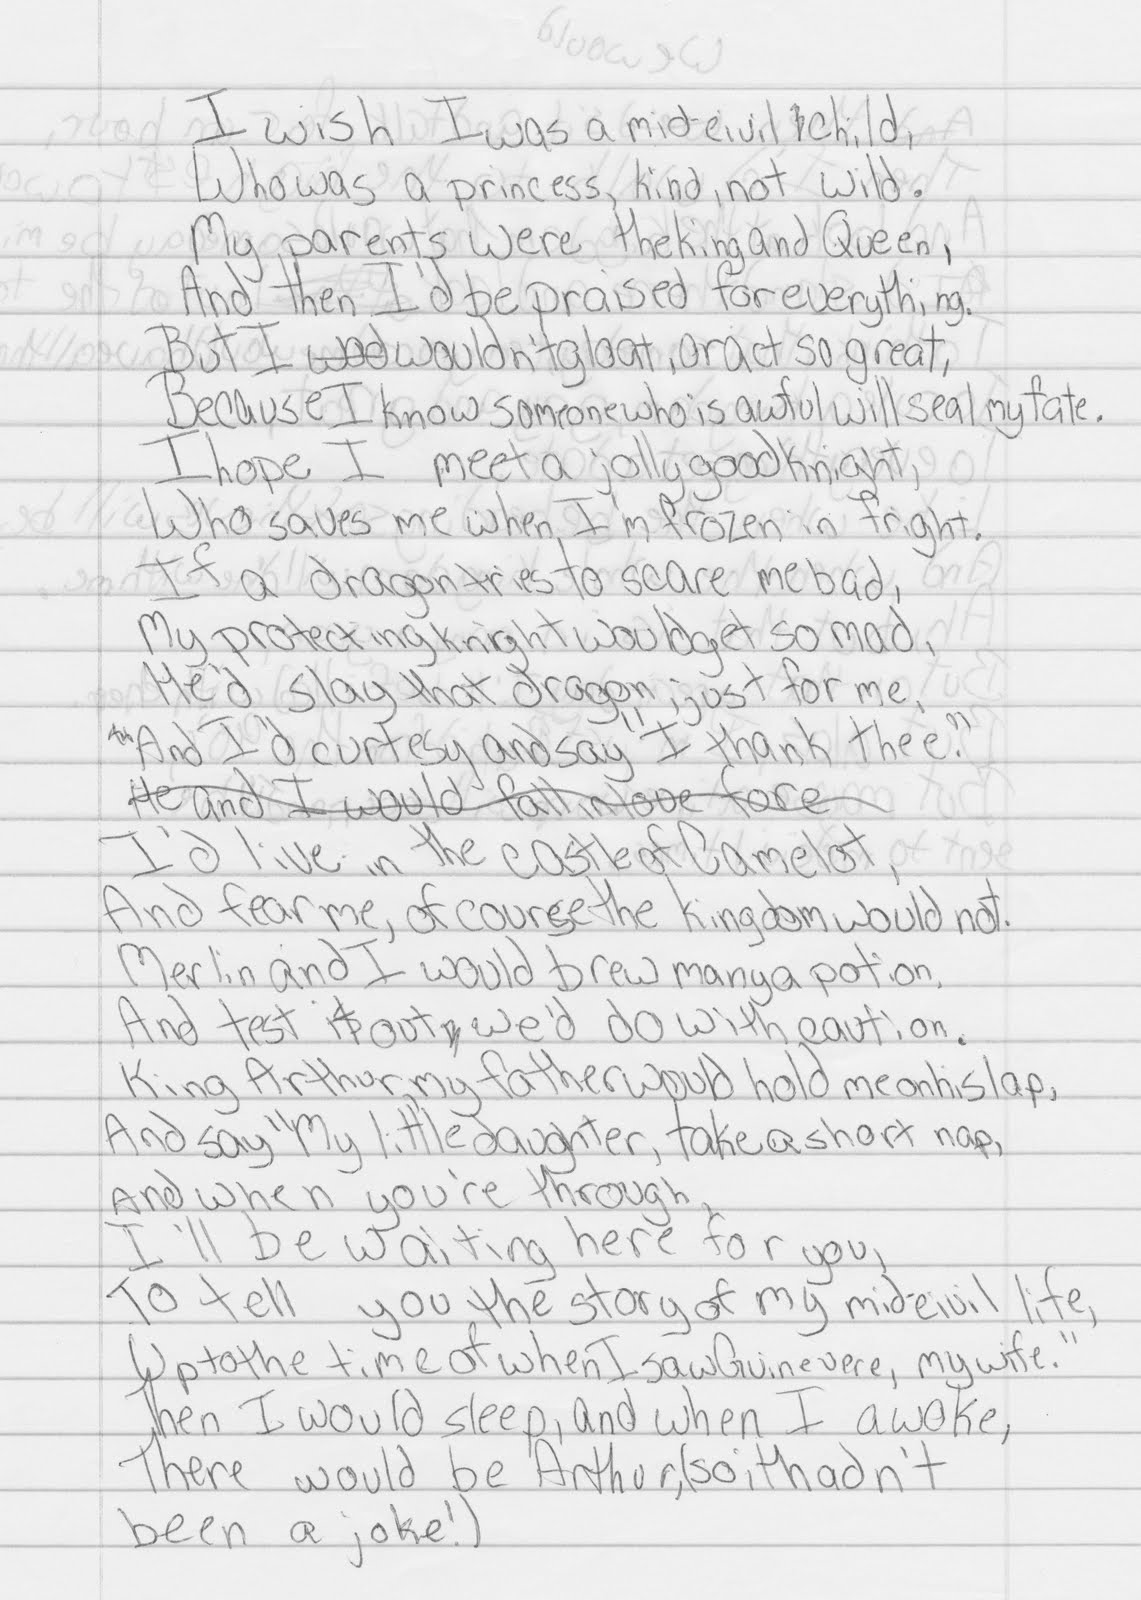 I wish I was a mid-eivil child,
Who was a princess, kind, not wild.
My parents were the King and Queen,
And then I'd be praised for everything.
But I wouldn't gloat, or act so great,
Because I know someone who is awful will seal my fate.
I hope I meet a jolly good knight,
Who saves me when I'm frozen in fright.
If a dragon tries to scare me bad,
My protecting knight would get so mad,
He'd slay that dragon, just for me,
And I'd curtesy and say "I thank thee."
He and I would fall in love fore
I'd live in the castle of Camelot,
And fear me, of course the kingdom would not.
Merlin and I would brew many a potion,
And test it out, we'd do with caution.
King Arthur, my father would hold me on his lap,
And say "My little daughter, take a short nap,
And when you're through,
I'll be waiting here for you,
To tell you the story of my mid-eivil life,
Up to the time of when I saw Guinevere, my wife."
Then I would sleep, and when I awoke,
There would be Arthur, (so it hadn't
been a joke!)